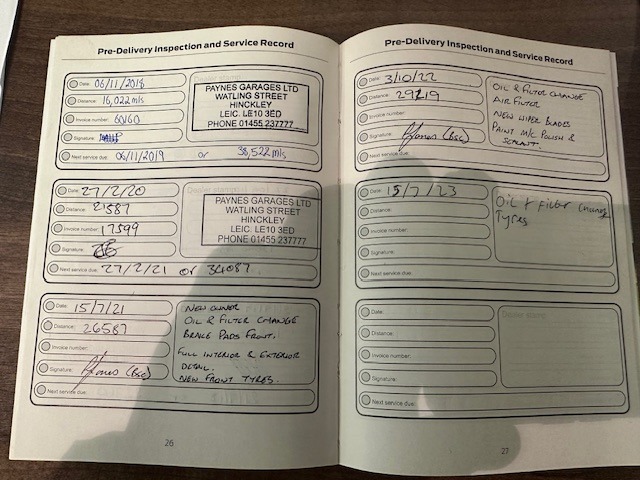 Pre-Delivery Inspection and Service Record
Date: 06/11/2018
Distance: 16,022 mls
Invoice number: 60160
Signature:
Next service due: 06/11/2019 or 38,522 mls
Dealer stamp
PAYNES GARAGES LTD
WATLING STREET
HINCKLEY
LEIC. LE10 3ED
PHONE 01455 237777
Date: 27/2/20
Distance: 21587
Invoice number: 17599
Signature:
Next service due: 27/2/21 or 34087
Dealer stamp
PAYNES GARAGES LTD
WATLING STREET
HINCKLEY
LEIC. LE10 3ED
PHONE 01455 237777
Date: 15/7/21
Distance: 26587
Invoice number:
Signature: (BSC)
Next service due:
NEW OWNER
OIL & FILTER CHANGE
BRAKE PADS FRONT.
FULL INTERIOR & EXTERIOR
DETAIL.
NEW FRONT TYRES.
26
Pre-Delivery Inspection and Service Record
Date: 3/10/22
Distance: 29219
Invoice number:
Signature: (BSC)
Next service due:
OIL & FILTER CHANGE
AIR FILTER
NEW WIPER BLADES
PAINT M/C POLISH &
SEALANT.
Date: 15/7/23
Distance:
Invoice number:
Signature:
Next service due:
Oil & Filter change
Tyres
Date:
Distance:
Invoice number:
Signature:
Next service due:
Dealer stamp
27